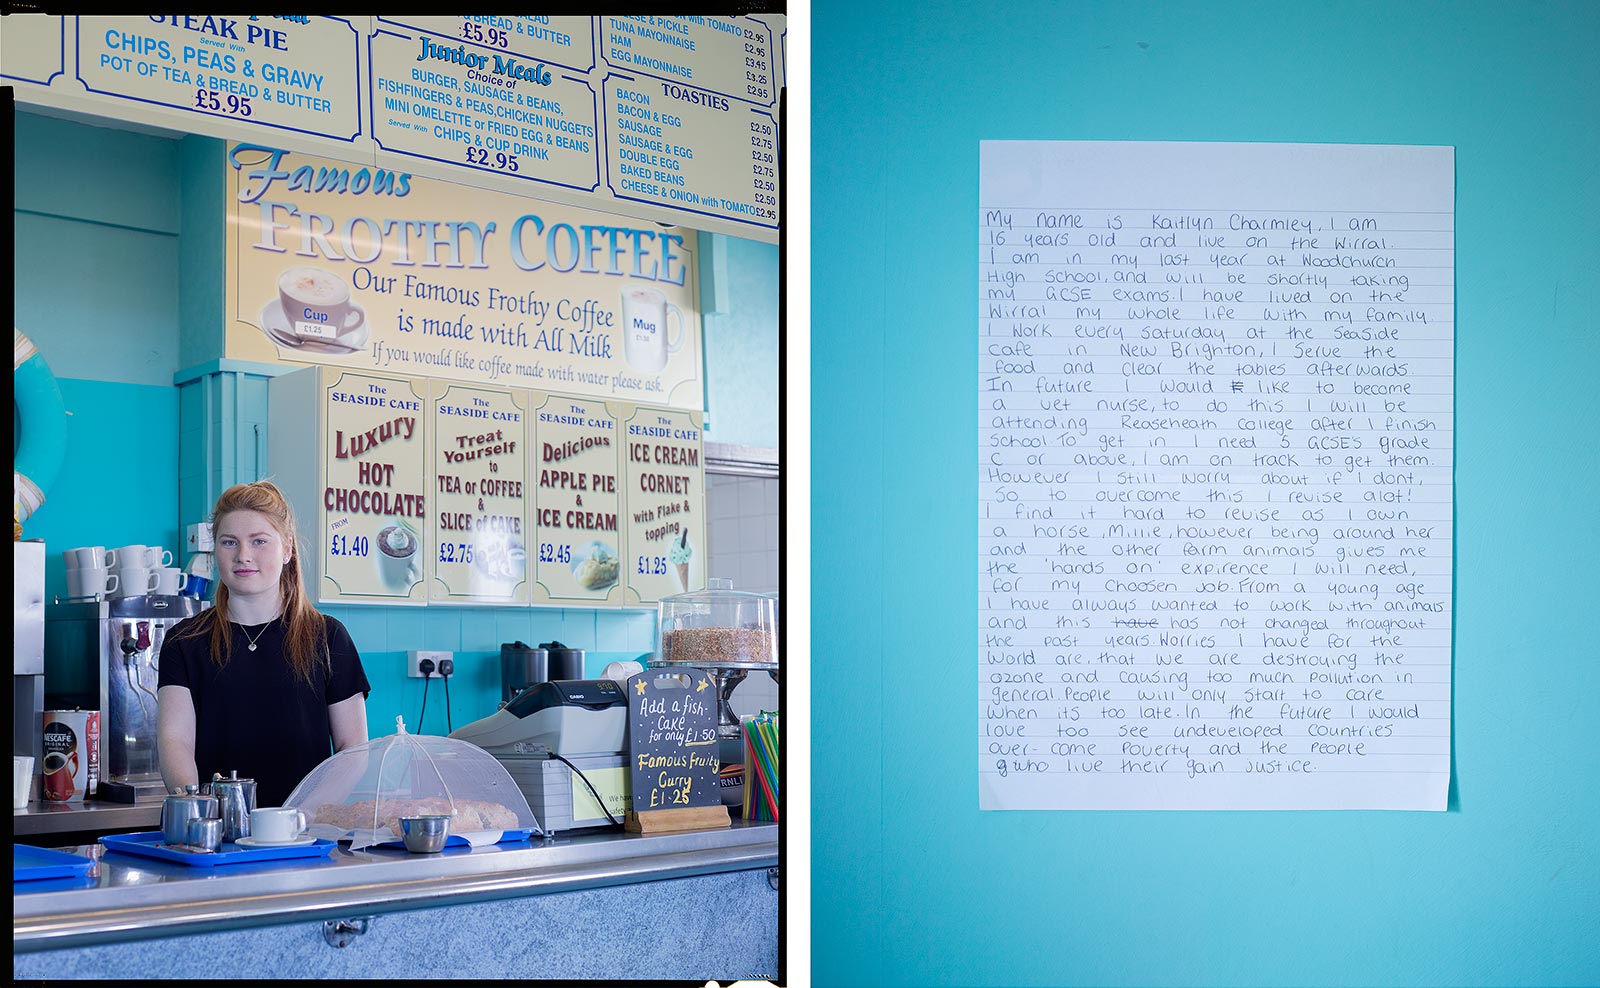 STEAK PIE
Served With
CHIPS, PEAS & GRAVY
POT OF TEA & BREAD & BUTTER
£5.95
BREAD & BUTTER
£5.95
Junior Meals
Choice of
BURGER, SAUSAGE & BEANS,
FISHFINGERS & PEAS, CHICKEN NUGGETS
MINI OMELETTE or FRIED EGG & BEANS
Served With CHIPS & CUP DRINK
£2.95
with TOMATO £2.95
CHEESE & PICKLE £2.95
TUNA MAYONNAISE £3.45
HAM £3.25
EGG MAYONNAISE £2.95
TOASTIES
BACON £2.50
BACON & EGG £2.75
SAUSAGE £2.50
SAUSAGE & EGG £2.75
DOUBLE EGG £2.50
BAKED BEANS £2.50
CHEESE & ONION with TOMATO £2.95
Famous
FROTHY COFFEE
Our Famous Frothy Coffee
is made with All Milk
If you would like coffee made with water please ask.
Cup
£1.25
Mug
The
SEASIDE CAFE
Luxury
HOT
CHOCOLATE
FROM
£1.40
The
SEASIDE CAFE
Treat
Yourself
to
TEA or COFFEE
&
SLICE of CAKE
£2.75
The
SEASIDE CAFE
Delicious
APPLE PIE
&
ICE CREAM
£2.45
The
SEASIDE CAFE
ICE CREAM
CORNET
with Flake &
topping
£1.25
NESCAFÉ
ORIGINAL
CASIO
Add a fish-
cake
for only £1.50
Famous Fruity
Curry
£1.25
We have
safety
My name is Kaitlyn Charmley, I am
16 years old and live on the Wirral.
I am in my last year at Woodchurch
High School, and will be shortly taking
my GCSE exams. I have lived on the
Wirral my whole life with my family.
I work every Saturday at the Seaside
cafe in New Brighton, I serve the
food and clear the tables afterwards.
In future I would like to become
a vet nurse, to do this I will be
attending Reaseheath College after I finish
School. To get in I need 5 GCSE'S grade
C or above, I am on track to get them.
However I still worry about if I dont,
So to overcome this I revise alot!
I find it hard to revise as I own
a horse, Millie, however being around her
and the other farm animals gives me
the 'hands on' expirence I will need,
for my choosen job. From a young age
I have always wanted to work with animals
and this have has not changed throughout
the past years. Worries I have for the
World are, that we are destroying the
ozone and causing too much pollution in
general. People will only start to care
when its too late. In the future I would
love too see undeveloped countries
over-come Poverty and the people
who live their gain justice.